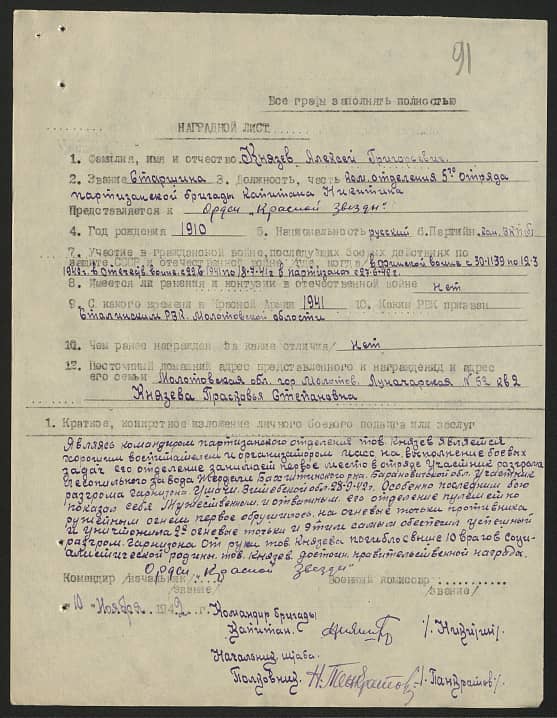 91
Все графы заполнять полностью
НАГРАДНОЙ ЛИСТ
1. Фамилия, имя и отчество Князев Алексей Григорьевич.
2. Звание Старшина 3. Должность, часть ком. отделения 5го отряда
партизанской бригады капитана Никитина
Представляется к Орден "Красной Звезды"
4. Год рождения 1910 5. Национальность русский 6. Партийн. кан. ВКП(б)
7. Участие в гражданской войне, последующих боевых действиях по
защите СССР и отечественной войне /где, когда/ в финской войне с 30-11-39 по 12-3
1940г. в Отечеств. войне с 22-6-1941 по 18-7-41г в партизанах с 27-6-42г.
8. Имеется ли ранения и контузии в отечественной войне нет
9. С какого времени в Красной Армии 1941 10. Каким РВК призван
Сталинским РВК. Молотовской области
10. Чем ранее награжден за какие отличия/ нет
12. Постоянный домашний адрес представленного к награждению и адрес
его семьи Молотовская обл. гор Молотов. Луначарская № 52 кв 2
Князева Прасковья Степановна
1. Краткое, конкретное изложение личного боевого подвига или заслуг
Являясь командиром партизанского отделения тов Князев является
хорошим воспитателем и организатором масс на выполнение боевых
задач его отделение занимает первое место в отряде Участник разгрома
лесопильного завода Бегомльского р-на Барановичской обл. Участник
разгрома гарнизона Ушачи. Вилейской обл. 28-9-42г. Особенно последним бою
показал себя Мужественным и отважным. его отделение пулеметно
ружейным огнем первое обрушилось на огневые точки противника
и уничтожила 2е огневые точки и этим самым обеспечил успешный
разгром гарнизона От руки тов Князева погибло свыше 10 врагов Соци-
алистической родины. тов. Князев достоин правительственной награды.
Орден "Красной Звезды"
Командир /начальник/ Военный комиссар
/звание/ /звание/
"10" Ноября 1942 г.
Командир бригады
Капитан. /. Никитин/.
Начальник штаба.
Полковник. Н. Панкратов /. Панкратов/.